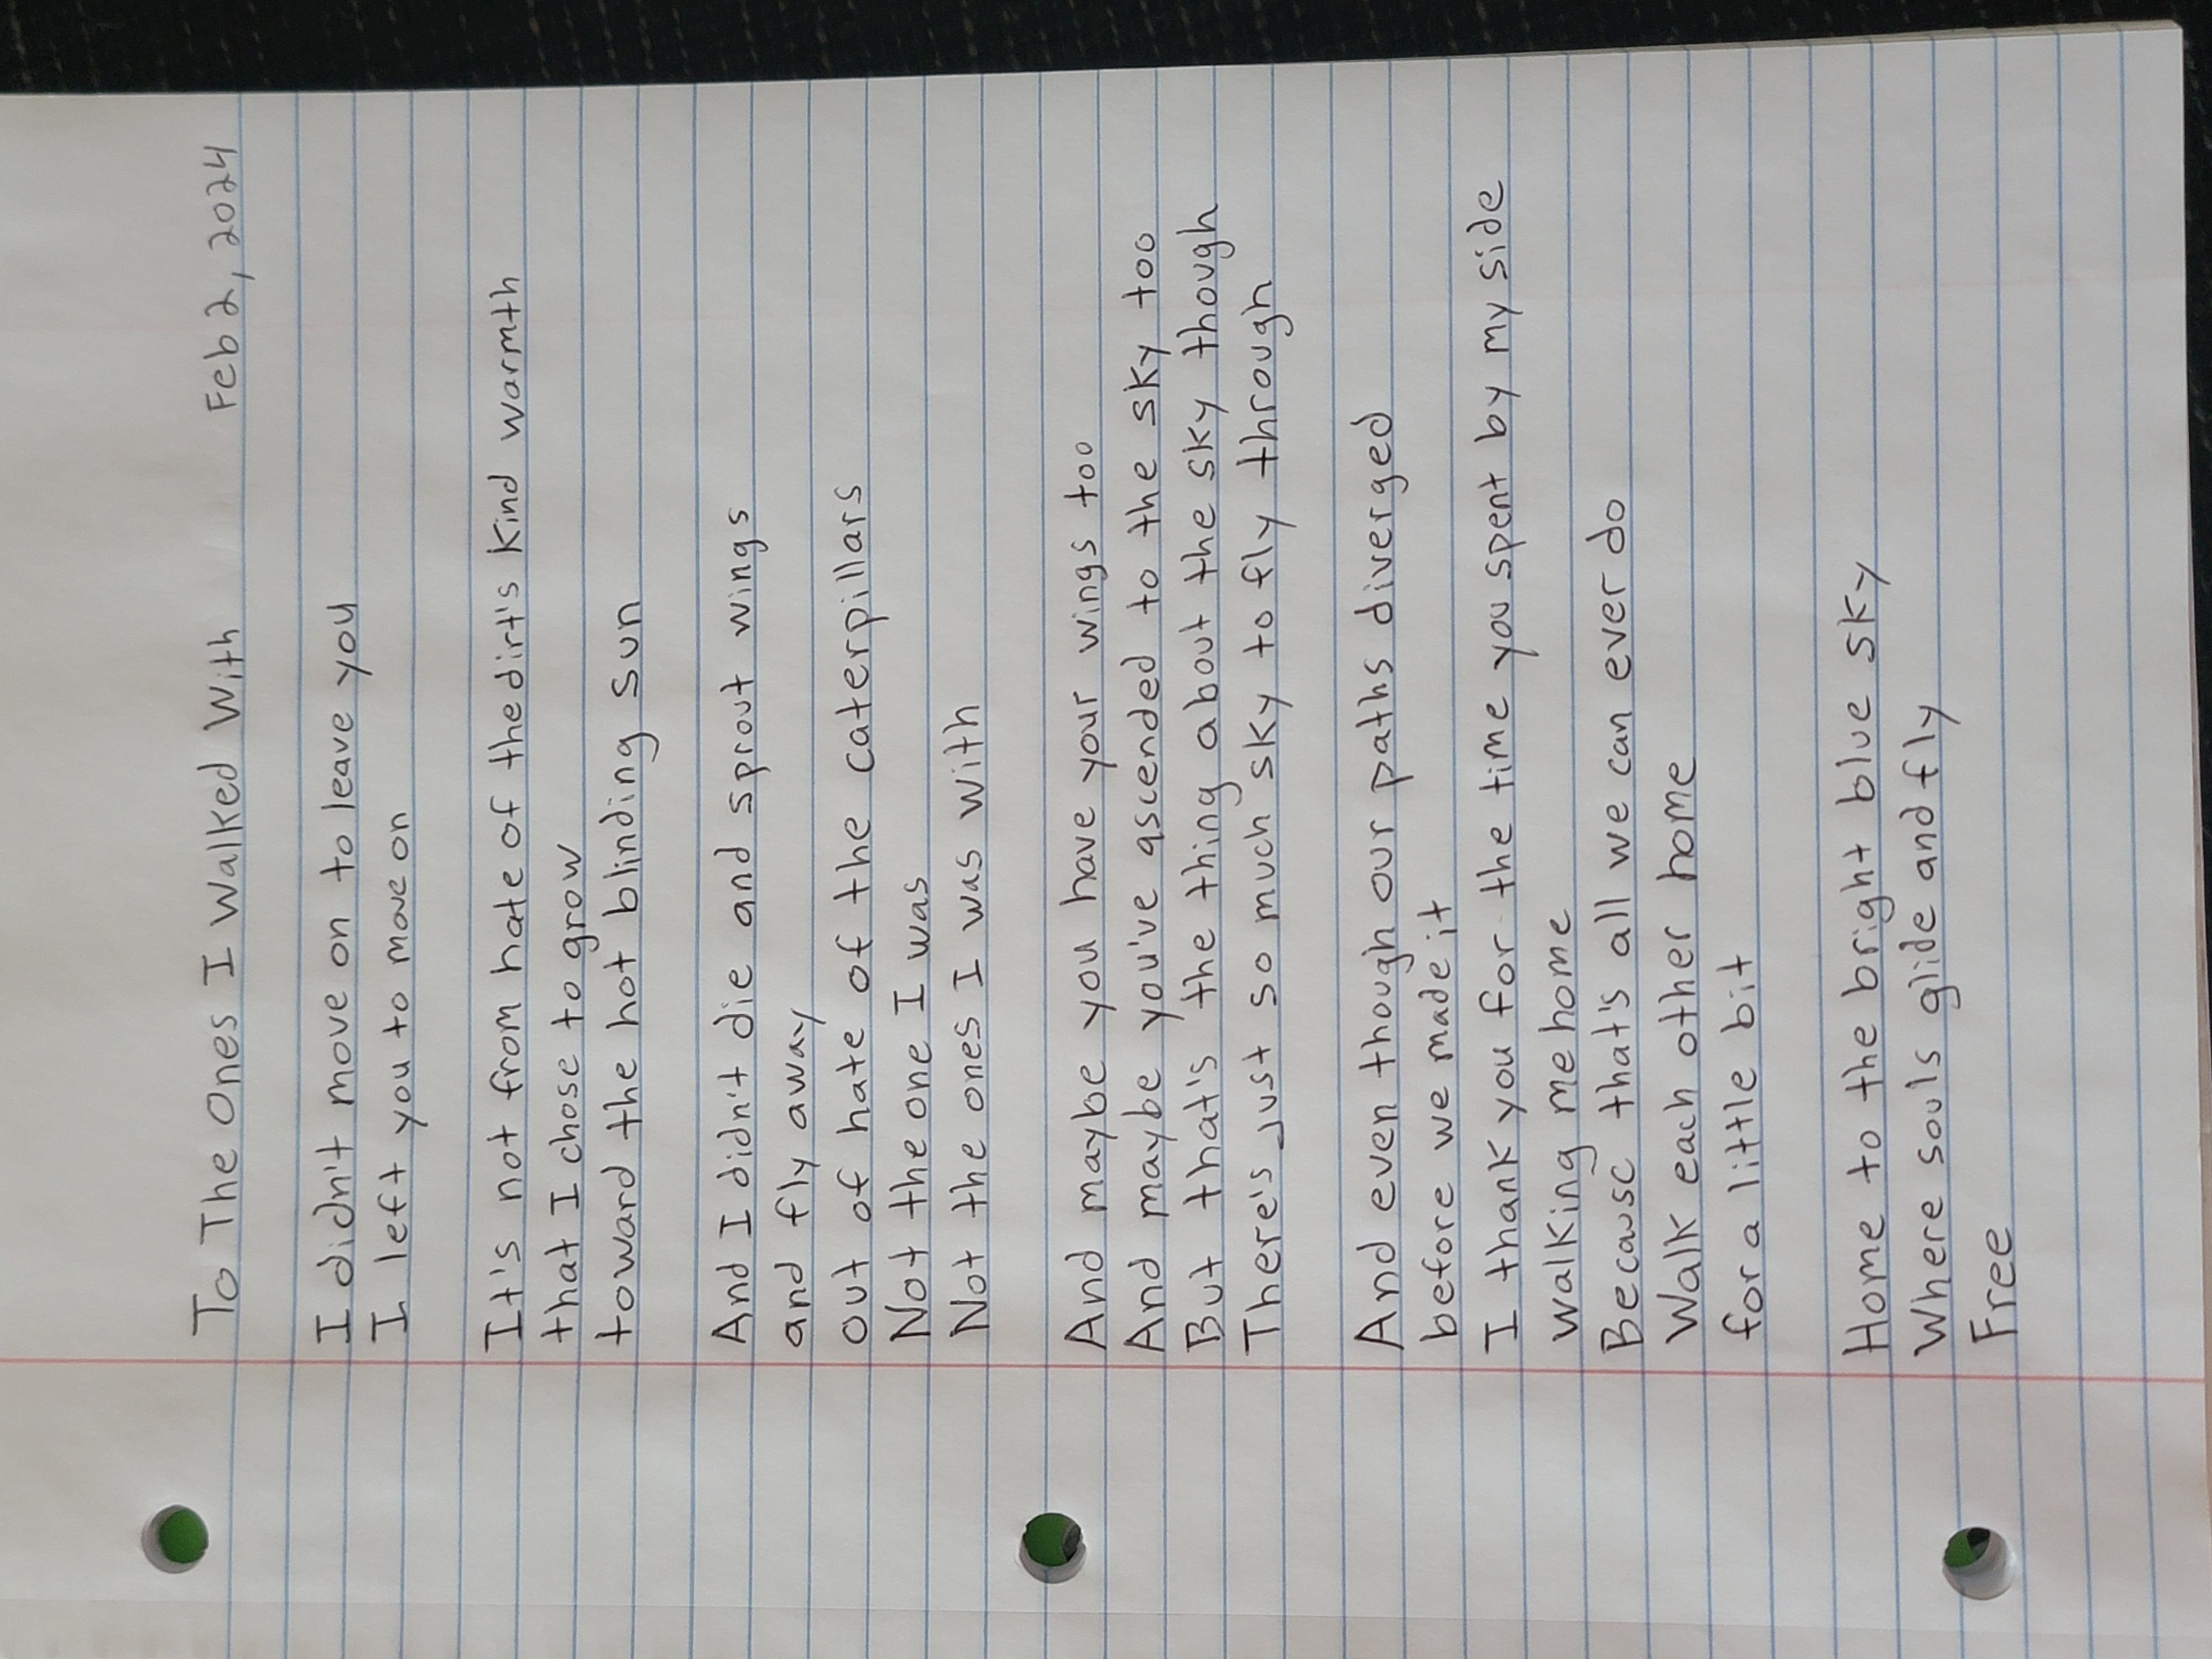 To The Ones I Walked With Feb 2, 2024
I didn't move on to leave you
I left you to move on
It's not from hate of the dirt's kind warmth
that I chose to grow
toward the hot blinding sun
And I didn't die and sprout wings
and fly away
out of hate of the caterpillars
Not the one I was
Not the ones I was with
And maybe you have your wings too
And maybe you've ascended to the sky too
But that's the thing about the sky though
There's just so much sky to fly through
And even though our paths diverged
before we made it
I thank you for the time you spent by my side
walking me home
Because that's all we can ever do
Walk each other home
for a little bit
Home to the bright blue sky
Where souls glide and fly
Free